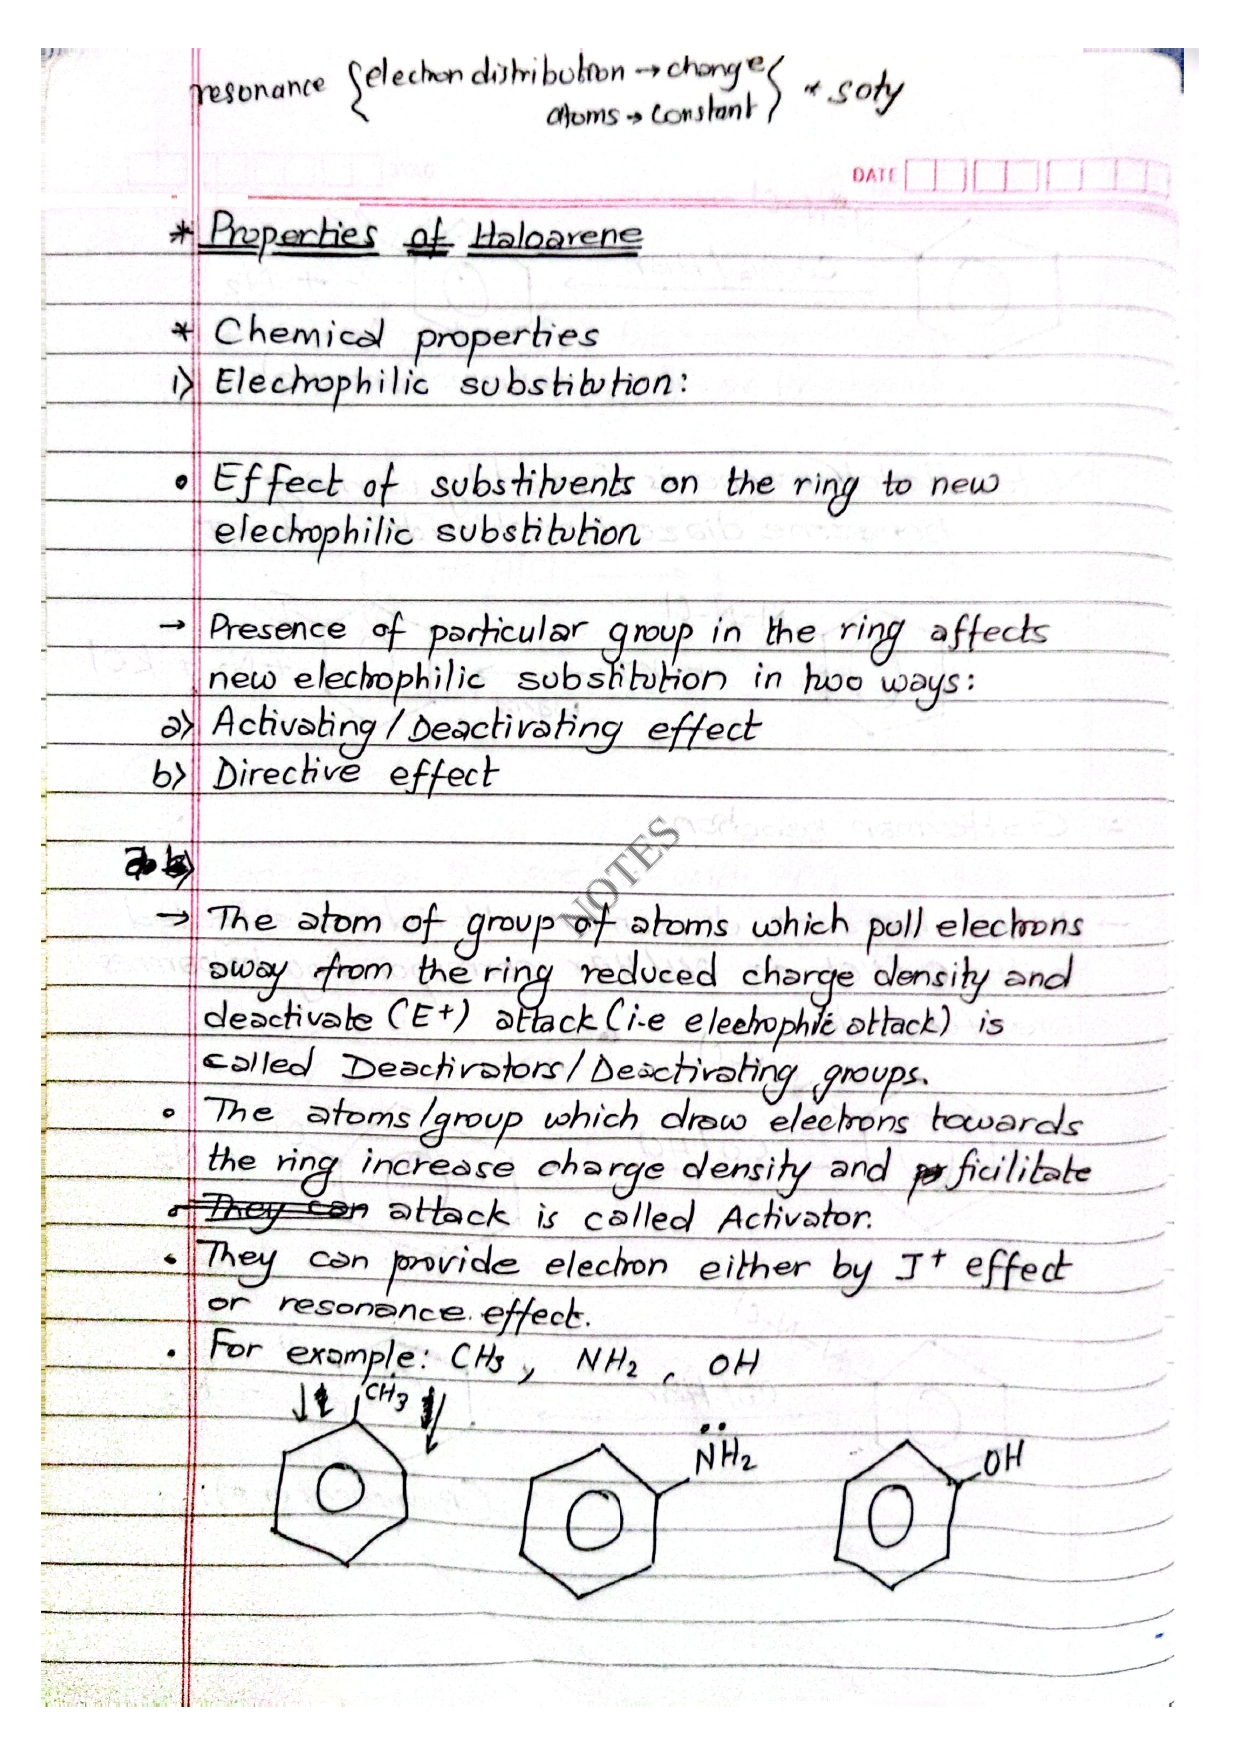 resonance { electron distribution → change } * soty
atoms → constant
DATE
* Properties of Haloarene
* Chemical properties
i) Electrophilic substitution:
• Effect of substituents on the ring to new
electrophilic substitution
→ Presence of particular group in the ring affects
new electrophilic substitution in two ways:
a) Activating / Deactivating effect
b) Directive effect
NOTES
→ The atom of group of atoms which pull electrons
away from the ring reduced charge density and
deactivate (E+) attack (i.e electrophilic attack) is
called Deactivators / Deactivating groups.
• The atoms/group which draw electrons towards
the ring increase charge density and ficilitate
They can attack is called Activator.
• They can provide electron either by I+ effect
or resonance effect.
• For example: CH3, NH2, OH
CH3
NH2
OH